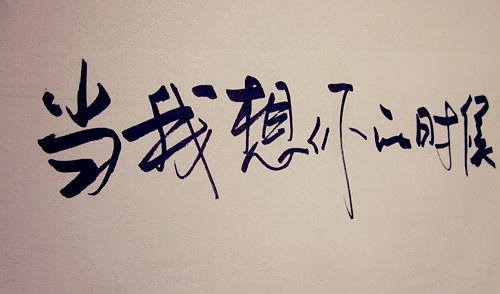 当我想你的时候